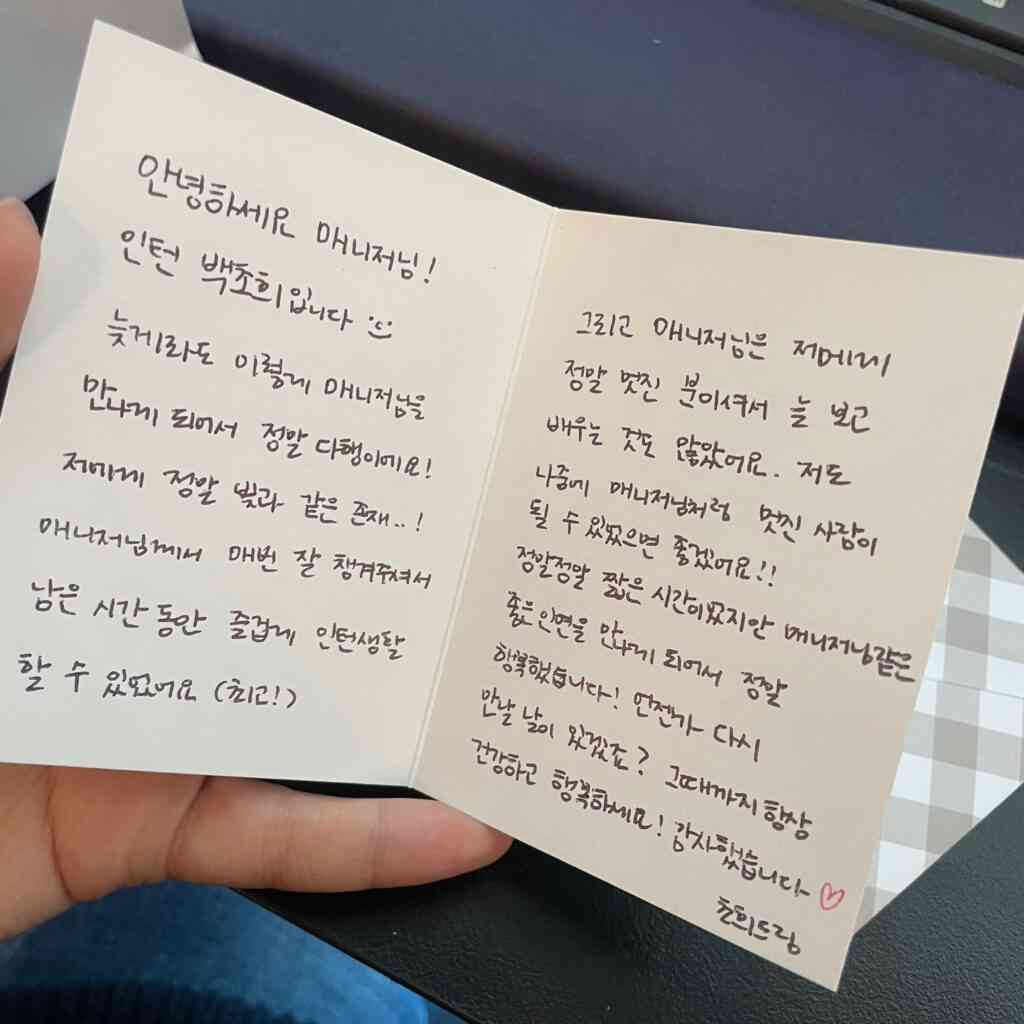 안녕하세요 매니저님!
인턴 백초희입니다 :)
늦게라도 이렇게 매니저님을
만나게 되어서 정말 다행이에요!
저에게 정말 빛과 같은 존재..!
매니저님께서 매번 잘 챙겨주셔서
남은 시간 동안 즐겁게 인턴생활
할 수 있었어요 (최고!)
그리고 매니저님은 저에게
정말 멋진 분이셔서 늘 보고
배우는 것도 많았어요. 저도
나중에 매니저님처럼 멋진 사람이
될 수 있었으면 좋겠어요!!
정말정말 짧은 시간이었지만 매니저님같은
좋은 인연을 만나게 되어서 정말
행복했습니다! 언젠가 다시
만날 날이 있겠죠? 그때까지 항상
건강하고 행복하세요! 감사했습니다 ♡
초희드림